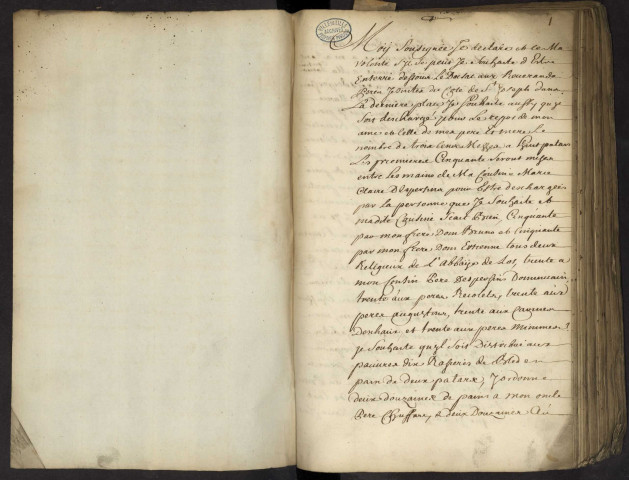 1
Moij Soussignée Je declare et ce Ma
volonté Sy Je peux Je Souhaite d'Estre
Enterré dessous le aux Reverends
Peres Jesuites du Coté de St Joseph dans
La derniere place, Je Souhaite aussy qu'Je
Soit deschargé pour Le repos de mon
ame et celle de mes pere Et mere Le
nombre de trois cens Messes a huit patars
Les premieres Cinquante Seront mises
entre les mains de Ma Cousine Marie
Claire pour Estre deschargées
par la personne que Je Souhaite et
madite Cousine Cinquante
par mon frere Dom Bruno et Cinquante
par mon frere Dom Estienne tous deux
Religieux de l'Abbaije de Los, trente a
mon Cousin Pere Dominicain,
trente aux peres Recolets, trente aux
peres augustins, trente aux Carmes
deschaux et trente aux peres minimes
Je Souhaite qu'il Soit Distribué aux
pauvres dix Rasieres de Bled en
pain de deux patars, J'ordonne
deux douzaines de pains a mon oncle
Pere Chuffart, a deux Douzaines